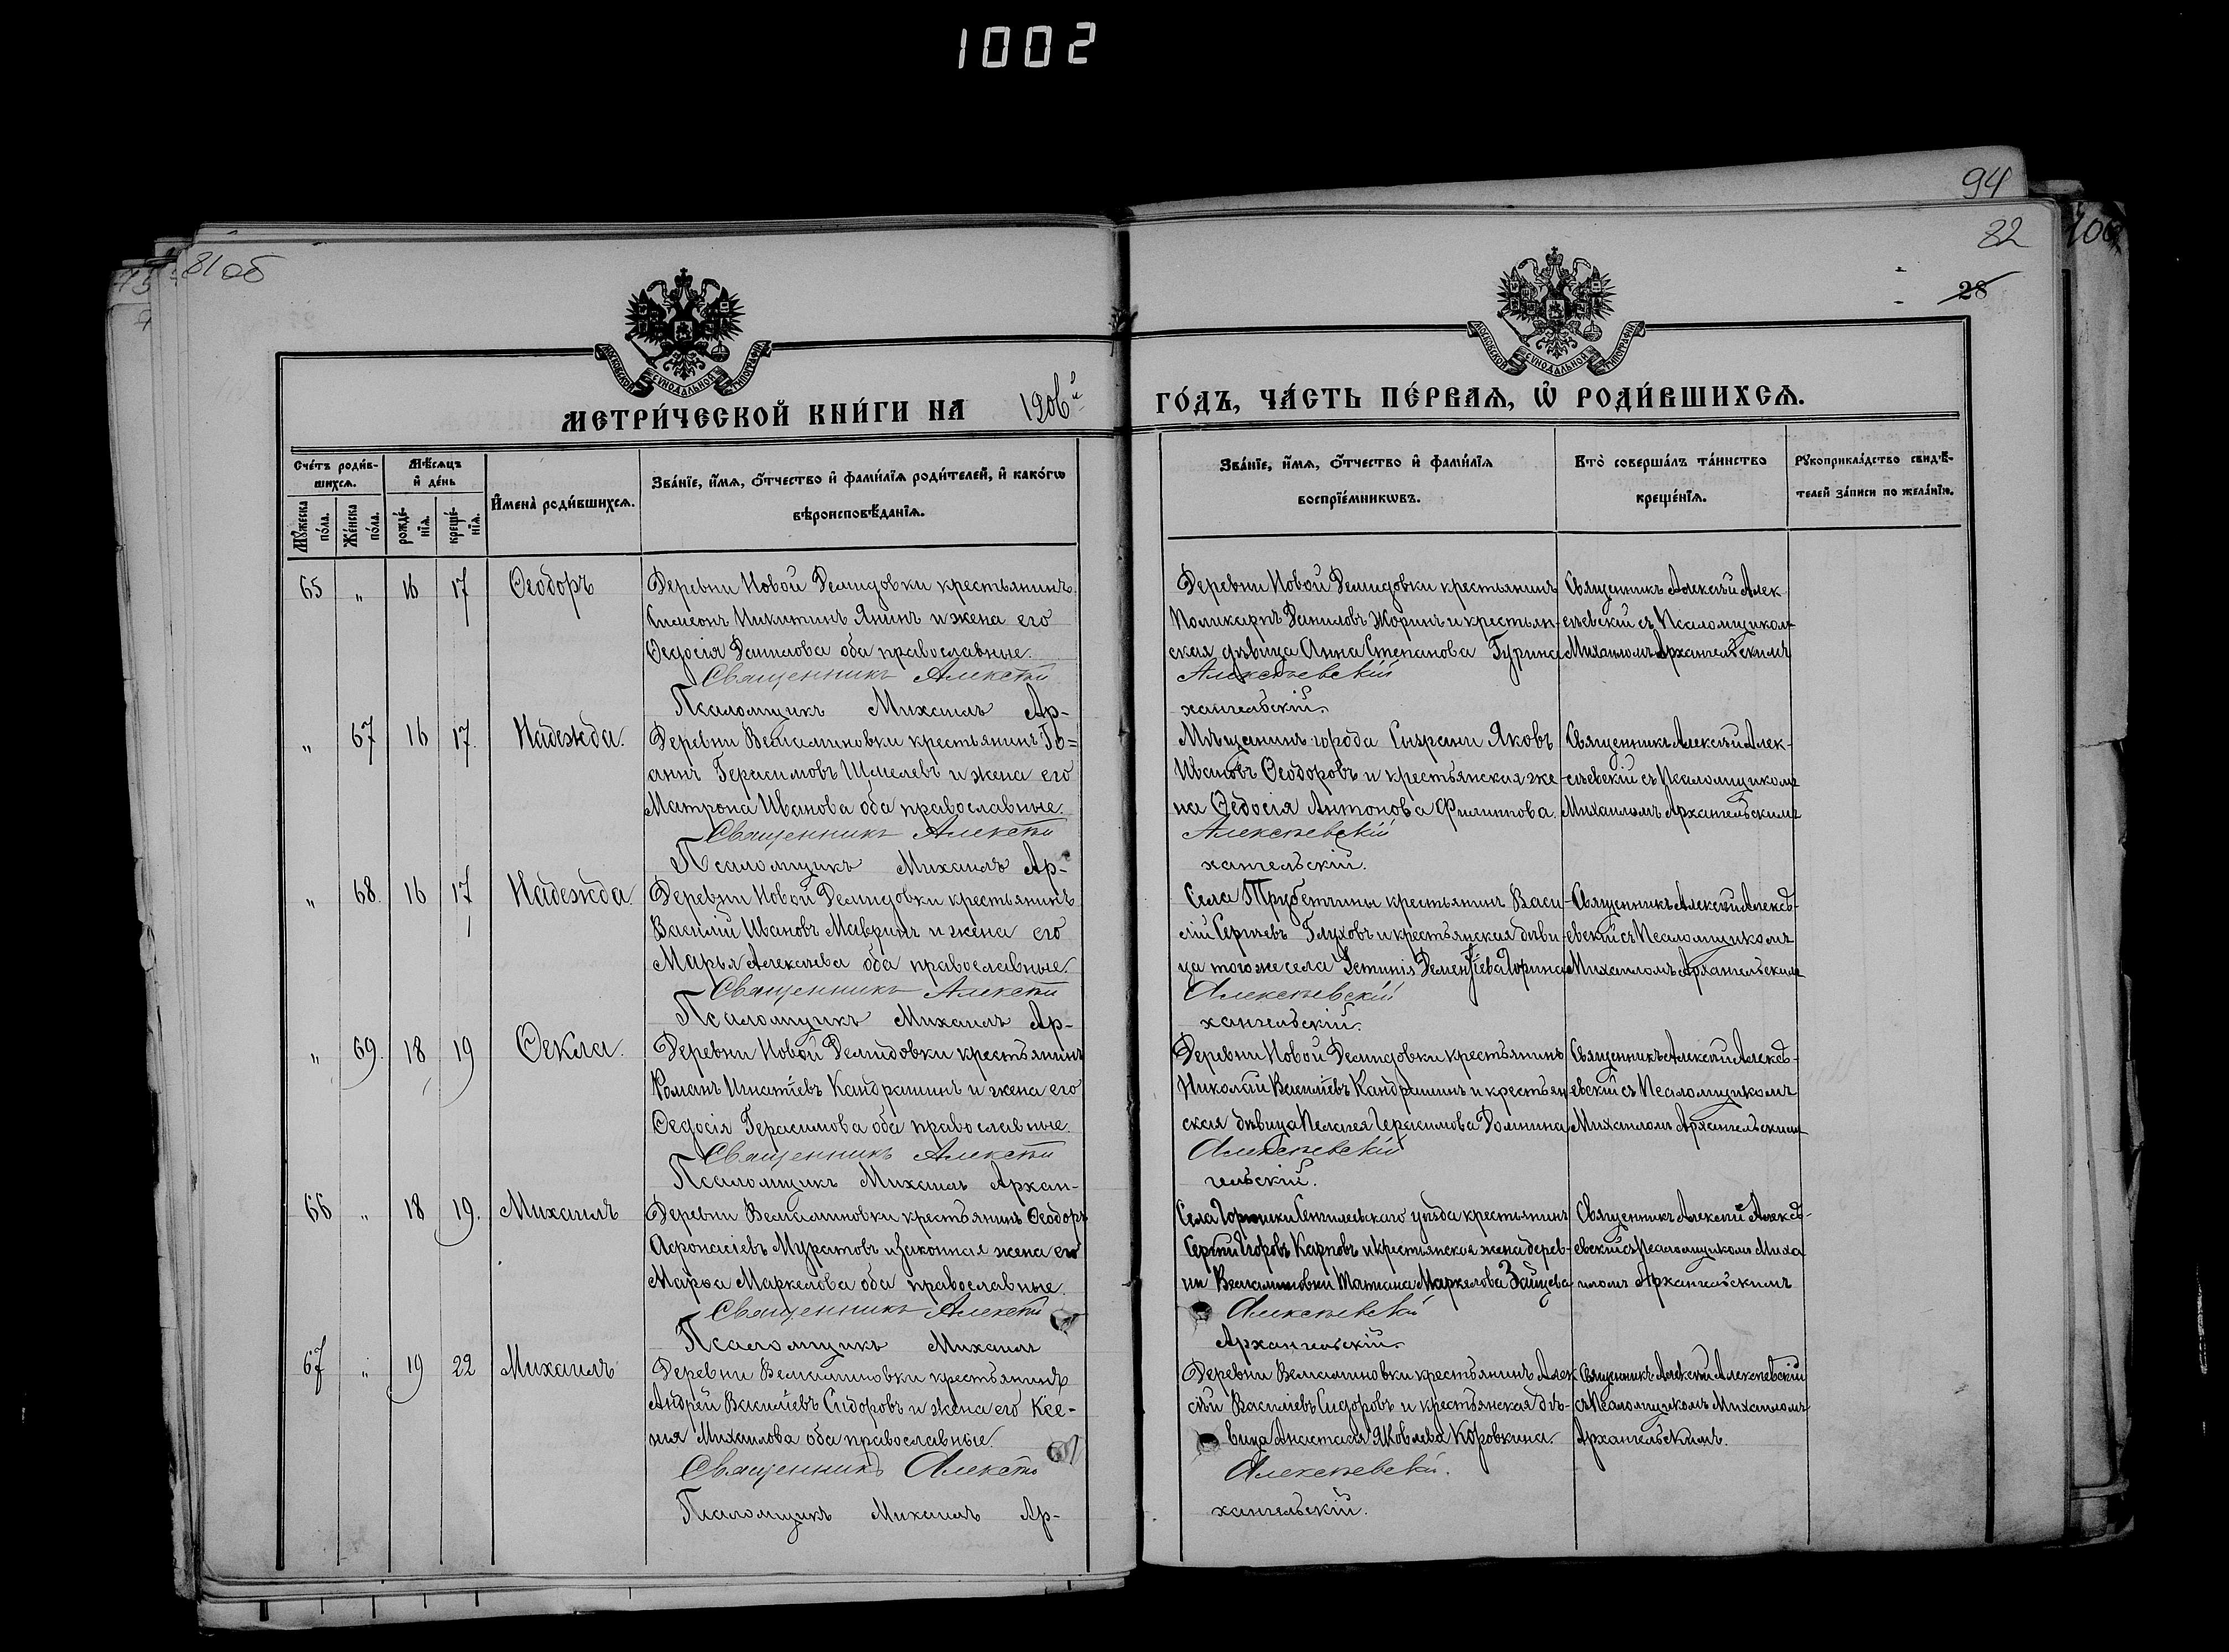 1002
94
81об
82
100
28
МОСКОВСКОЙ СѴНОДАЛЬНОЙ ТИПОГРАФІИ
МОСКОВСКОЙ СѴНОДАЛЬНОЙ ТИПОГРАФІИ
МЕТРИ́ЧЕСКОЙ КНИ́ГИ НА 1906й ГО́ДЪ, ЧА́СТЬ ПЕ́РВАѦ, Ѡ҆ РОДИ́ВШИХСѦ.
Сче́тъ роди́в-
шихсѧ.
Мꙋ́жеска по́ла.
Же́нска по́ла.
Мѣ́сѧцъ и҆ де́нь
рожде́-нїѧ.
креще́-нїѧ.
И҆мена̀ роди́вшихсѧ.
Зва́нїе, и҆́мѧ, ѻ҆́тчество и҆ фами́лїѧ роди́телей, и҆ како́гѡ
вѣроисповѣ́данїѧ.
Зва́нїе, и҆́мѧ, ѻ҆́тчество и҆ фами́лїѧ
воспрїе́мникѡвъ.
Кто̀ соверша́лъ та́инство
креще́нїѧ.
Рꙋкоприкла́дство свидѣ́-
телей за́писи по жела́нїю.
65 „ 16 17 Ѳеодоръ
Деревни Новой Демидовки крестьянинъ
Симеонъ Никитинъ Янинъ и жена его
Ѳедосія Данилова оба православные.
Священникъ Алексѣй
Псаломщикъ Михаилъ Ар-
Деревни Новой Демидовки крестьянинъ
Поликарпъ Даниловъ Жоринъ и крестьян-
ская дѣвица Анна Степанова Гурина
Алексѣевскій
хангельскій.
Священникъ Алексѣй Алек
сѣевскій съ Псаломщикомъ
Михаиломъ Архангельскимъ
„ 67 16 17. Надежда.
Деревни Веньяминовки крестьянинъ Іо=
аннъ Герасимовъ Шмелевъ и жена его
Матрона Иванова оба православные.
Священникъ Алексѣй
Псаломщикъ Михаилъ Ар-
Мѣщанинъ города Сызрани Яковъ
Ивановъ Ѳеодоровъ и крестьянская же-
на Ѳедосія Антонова Филиппова.
Алексѣевскій
хангельскій.
Священникъ Алексѣй Алек-
сѣевскій съ Псаломщикомъ
Михаиломъ Архангельскимъ
„ 68. 16 17 Надежда.
Деревни Новой Демидовки крестьянинъ
Василій Ивановъ Мавринъ и жена его
Марья Алексѣева оба православные.
Священникъ Алексѣй
Псаломщикъ Михаилъ Ар-
Села Трубетчины крестьянинъ Васи-
лій Сергѣевъ Глуховъ и крестьянская дѣви-
ца тогоже села Дементіева Горина
Алексѣевскій
хангельскій.
Священникъ Алексѣй Алексѣ-
евскій съ Псаломщикомъ
Михаиломъ Архангельскимъ
„ 69. 18 19 Ѳекла.
Деревни Новой Демидовки крестьянинъ
Романъ Игнатіевъ Кандрашинъ и жена его
Ѳедосія Герасимова оба православные.
Священникъ Алексѣй
Псаломщикъ Михаилъ Архан-
Деревни Новой Демидовки крестьянинъ
Николай Василіевъ Кандрашинъ и крестьян-
ская дѣвица Пелагея Герасимова Домнина
Алексѣевскій
гельскій.
Священникъ Алексѣй Алексѣ-
евскій съ Псаломщикомъ
Михаиломъ Архангельскимъ
66 „ 18 19. Михаилъ
Деревни Веньяминовки крестьянинъ Ѳеодоръ
Аѳонасіевъ Муратовъ и законная жена его
Марѳа Маркелова оба православные.
Священникъ Алексѣй
Псаломщикъ Михаилъ
Села Горюшки Сенгилеевскаго уѣзда крестьянинъ
Сергѣй Егоровъ Карповъ и крестьянская жена дерев-
ни Веньяминовки Татiана Маркелова Зайцева
Алексѣевскій
Архангельскій.
Священникъ Алексѣй Алексѣ-
евскій съ Псаломщикомъ Миха
иломъ Архангельскимъ
67 „ 19 22 Михаилъ
Деревни Веньяминовки крестьянинъ
Андрей Василіевъ Сидоровъ и жена его Ксе-
нія Михаилова оба православные.
Священникъ Алексѣй
Псаломщикъ Михаилъ Ар-
Деревни Веньяминовки крестьянинъ Алек
сѣй Василіевъ Сидоровъ и крестьянская дѣ-
вица Анастасія Яковлева Коровкина.
Алексѣевскій.
хангельскій.
Священникъ Алексѣй Алексѣевскій
съ Псаломщикомъ Михаиломъ
Архангельскимъ.